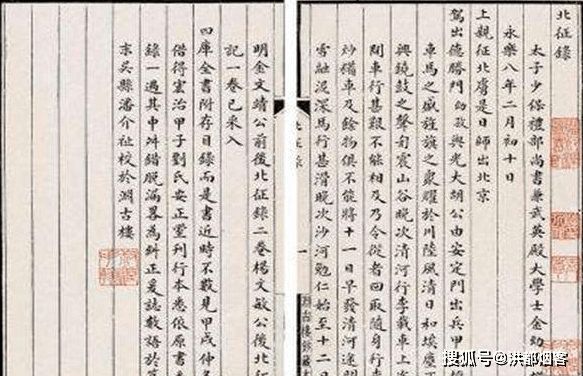 北征錄
太子少保禮部尚書兼武英殿大學士金幼
永樂八年二月初十日
上親征北虜是日師出北京
駕出德勝門幼孜與光大胡公由安定門出兵甲
車馬之盛旌旗之衆耀於川陸風清日和埃塵
興鐃鼓之聲訇震山谷晚次清河行李載車上
閒車行甚艱不能相及乃令從者回取隨身行
炒糧車及餘物俱不能將十一日早發清河途
雪融泥深馬行甚滑晚次沙河勉仁始至十二日
北征錄
明金文靖公前後北征錄二卷楊文敏公後北征
記一卷已采入
四庫全書附存目錄而是書近時不數見甲戌仲
借得宏治甲子劉氏安正堂刊行本悉依原書
錄一過其中舛錯脫漏畧為糾正爰誌數語於
末吳縣潘介祉校於淵古樓
搜狐号@洪都烟客